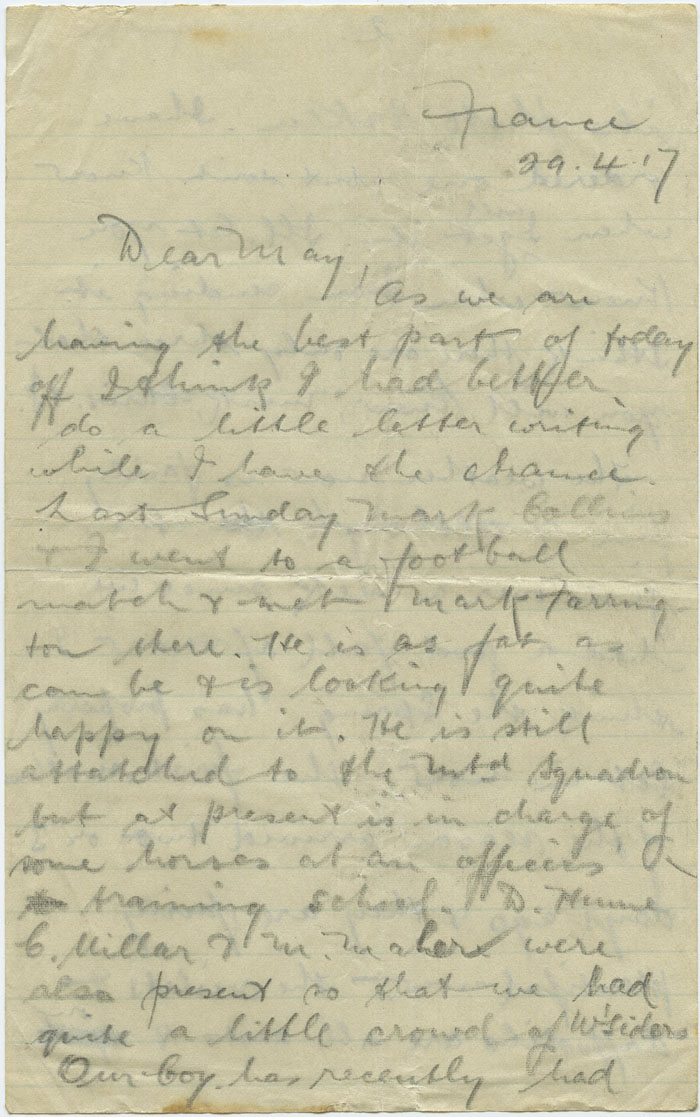 France
29.4.17
Dear May,
As we are
having the best part of today
off I think I had better
do a little letter writing
while I have the chance.
Last Sunday Mark Collins
& I went to a football
match & met Mark Farring-
ton there. He is as fat as
can be & is looking quite
happy on it. He is still
attatched to the Mtd Squadron
but at present is in charge of
some horses at an officers
training school. D.
C. Millar & M. Maher were
also present so that we had
quite a little crowd of W'Siders
Our boy has recently had